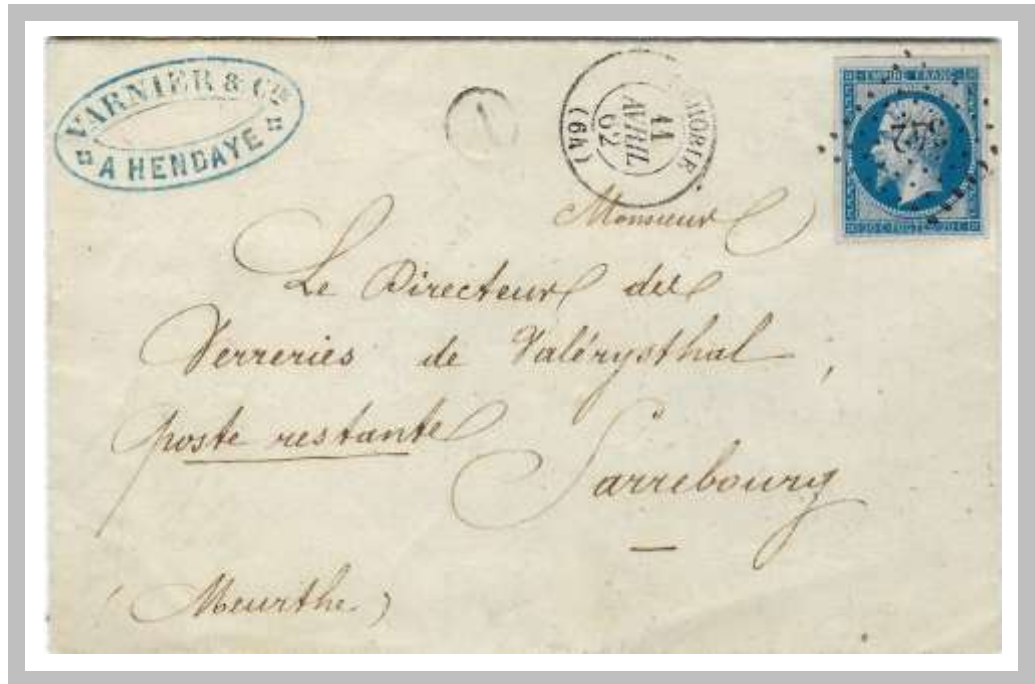 VARNIER & Cie
A HENDAYE
11
AVRIL
62
(64)
EMPIRE FRANC.
20 C. POSTES 20 C.
Monsieur
Le Directeur des
Verreries de Valérysthal,
poste restante
Sarrebourg
(Meurthe)